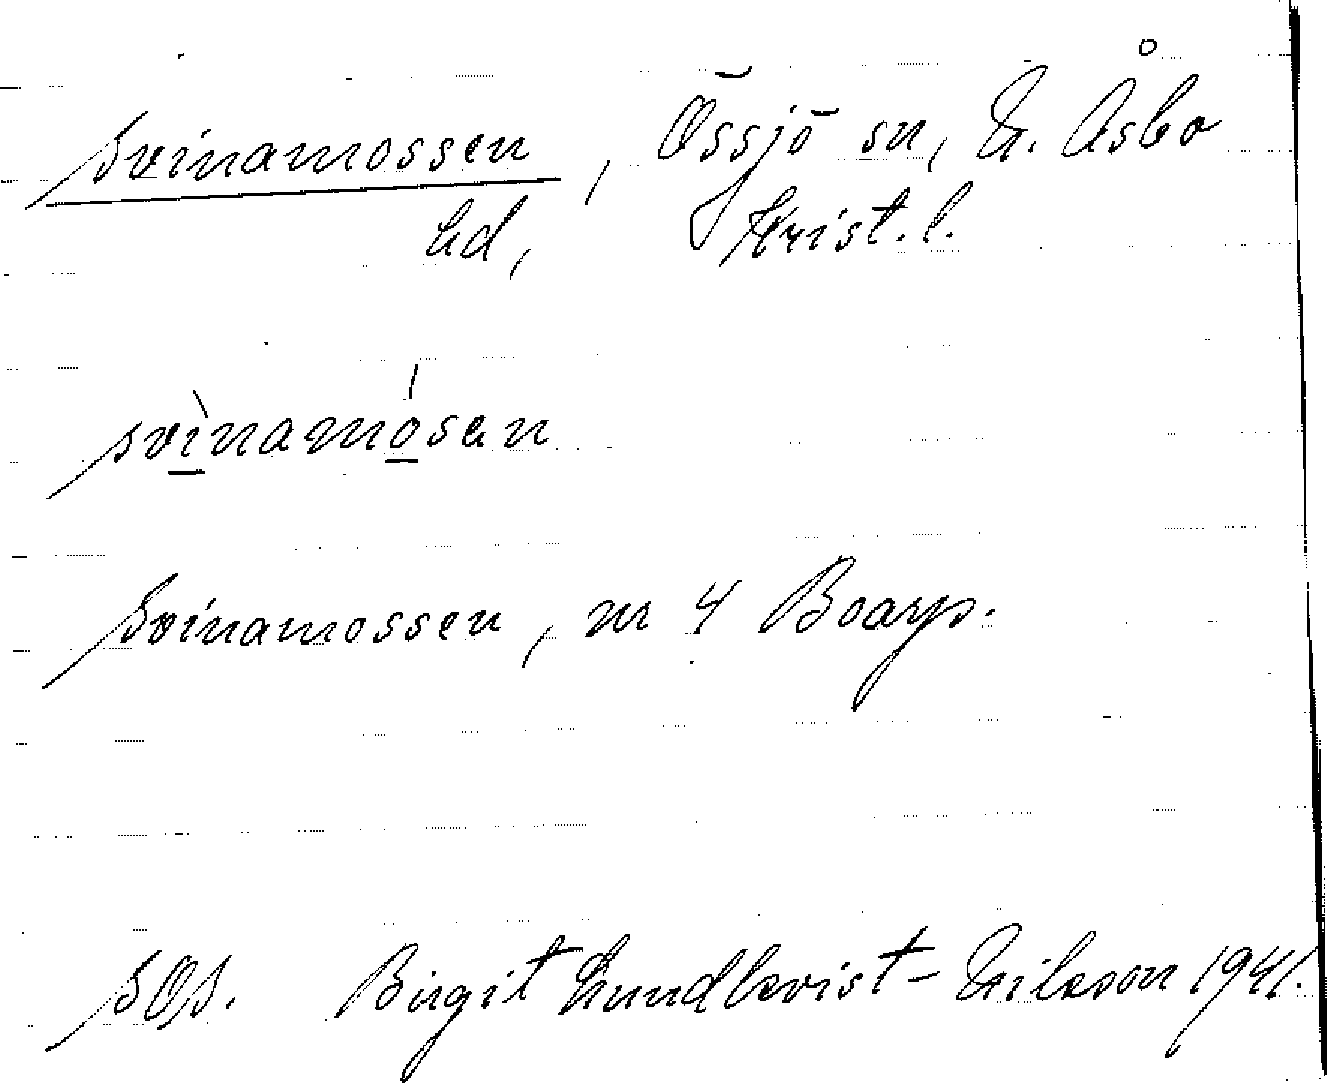 Svinamossen, Össjö sn, N. Åsbo
hd, Krist. l.
svìnamósen
Svinamossen, nr 4 Boarp.
SOS. Birgit Lundkvist-Nilsson 1941.